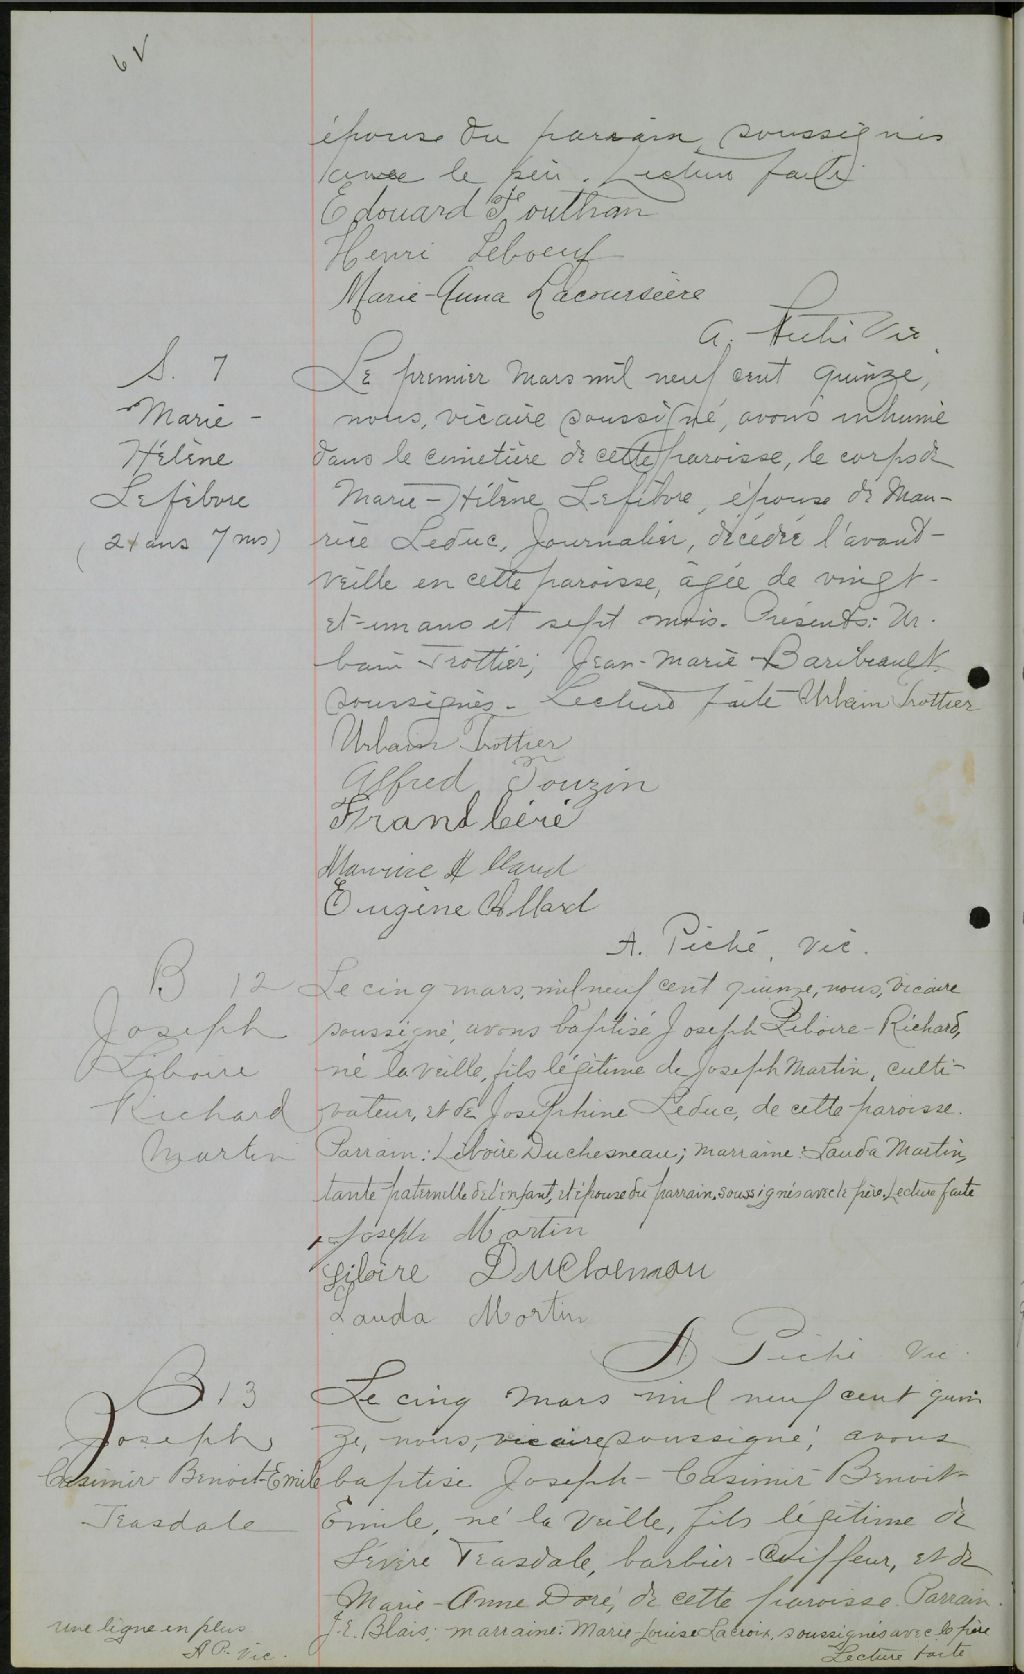 6V
épouse du parrain, soussignés
avec le père. Lecture faite.
Edouard Touthan
Henri Leboeuf
Marie-Anna Lacoursière
A. Piché Vic.
S. 7
Marie-
Hélène
Lefèbvre
(21 ans 7 ms)
Le premier Mars mil neuf cent quinze,
nous, vicaire soussigné, avons inhumé
dans le cimetière de cette paroisse, le corps de
Marie-Hélène Lefèbvre, épouse de Mau-
rice Leduc, Journalier, décédée l'avant-
veille en cette paroisse, âgée de vingt-
et-un ans et sept mois. Présents: Ur-
bain Trottier; Jean-Marie Baribeault
soussignés. Lecture faite Urbain Trottier
Urbain Trottier
Alfred Touzin
Frand Céré
Maurice Allard
Eugène Allard
A. Piché, vic.
B 12
Joseph
Liboire
Richard
Martin
Le cinq mars, mil neuf cent quinze, nous, vicaire
soussigné, avons baptisé Joseph Liboire-Richard,
né la veille, fils légitime de Joseph Martin, culti-
vateur, et de Joséphine Leduc, de cette paroisse.
Parrain: Liboire Duchesneau; marraine: Lauda Martin,
tante paternelle de l'enfant, et épouse du parrain, soussignés avec le père. Lecture faite
Joseph Martin
Liboire Duchesneau
Lauda Martin
A Piché Vic.
B 13
Joseph
Casimir Benoit-Emile
Teasdale
Le cinq Mars mil neuf cent quin
ze, nous, vicaire soussigné, avons
baptisé Joseph-Casimir Benoit-
Emile, né la veille, fils légitime de
Sévère Teasdale, barbier-coiffeur, et de
Marie-Anne Doré, de cette paroisse. Parrain.
J.E. Blais; marraine: Marie-Louise Lacroix, soussignés avec le père
Lecture faite
une ligne en plus
A P. Vic.